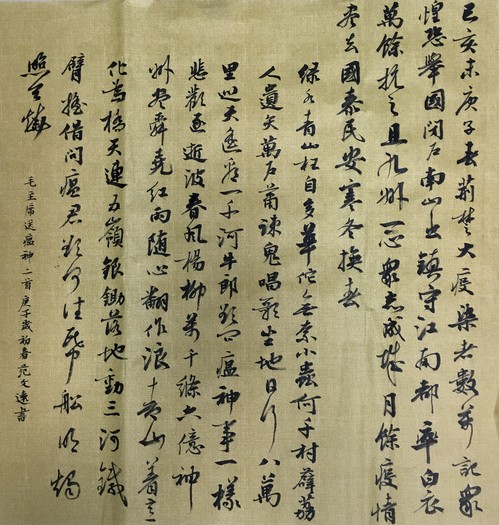 己亥末庚子春荆楚大疫染者數萬記衆
惶恐舉國閉户南山出鎮守江南都率白衣
萬餘抗之且九州一心衆志成城月餘疫情
盡去國泰民安寒冬換春
绿水青山枉自多華陀無奈小蟲何千村薜荔
人遺矢萬户蕭疎鬼唱歌坐地日行八萬
里巡天遥看一千河牛郎欲问瘟神事一樣
悲歡逐逝波春风楊柳萬千條六億神
州盡舜堯红雨随心翻作浪青山着意
化為橋天連五嶺銀鋤落地動三河鐵
臂摇借问瘟君欲何往纸船明燭
照天燒
毛主席送瘟神二首庚子歲初春范文遠書